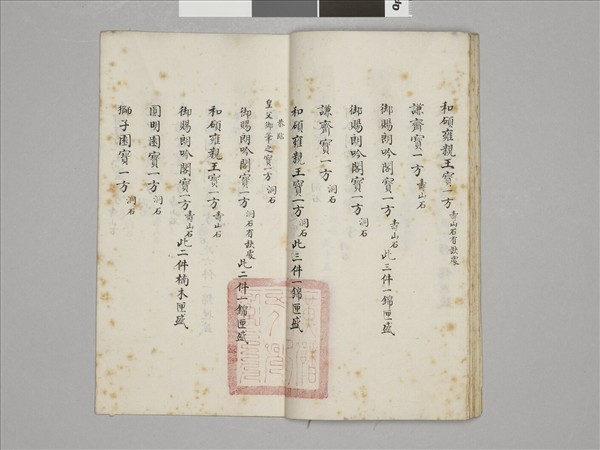 和碩雍親王寶一方壽山石有缺處
謙齋寶一方壽山石
御賜朗吟閣寶一方壽山石此三件一錦匣盛
御賜朗吟閣寶一方洞石
謙齋寶一方洞石
和碩雍親王寶一方洞石此三件一錦匣盛
恭臨
皇父御筆之寶一方洞石
御賜朗吟閣寶一方洞石有缺處此二件一錦匣盛
和碩雍親王寶一方壽山石
御賜朗吟閣寶一方壽山石此二件楠木匣盛
圓明園寶一方洞石
獅子園寶一方洞石